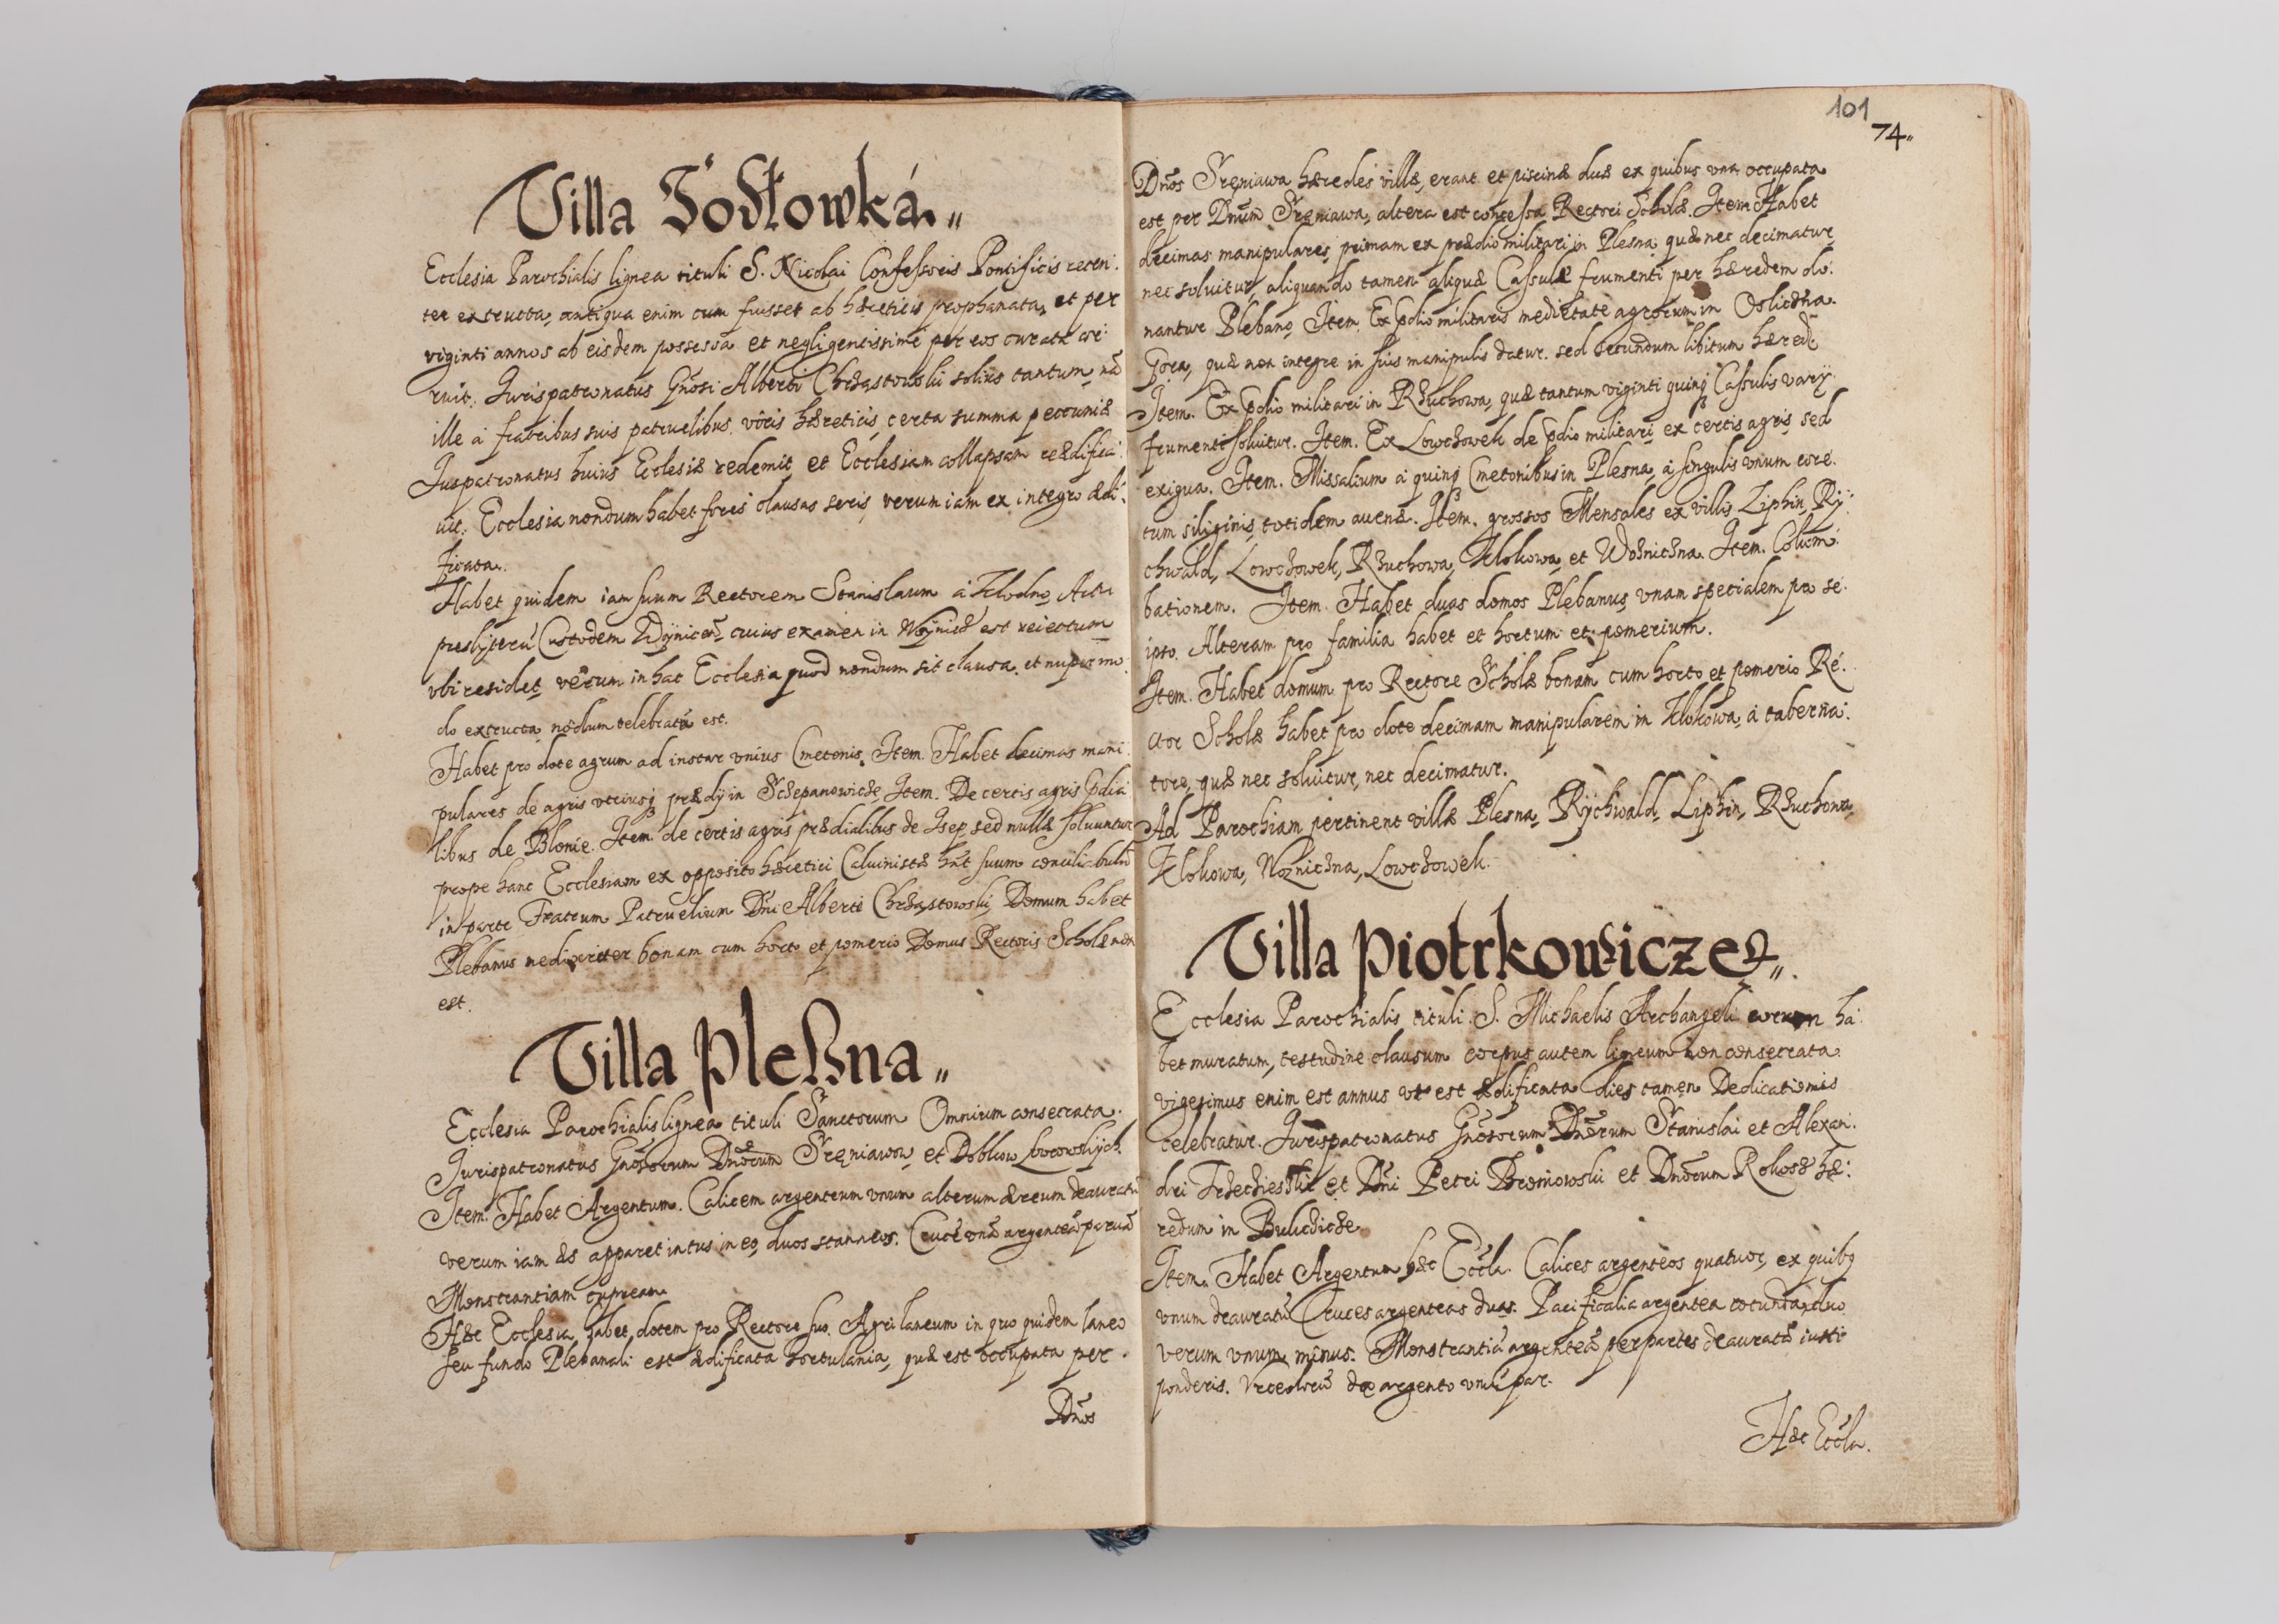 Villa Jodłowká.,,
Ecclesia Parochialis lignea tituli S. Nicolai Confessoris Pontificis recen:
ter extructa, antiqua enim cum fuisset ab hæreticis prophanata, et per
viginti annos ab eisdem possessa et negligentissimè per eos curata cor:
ruit: Jurispatronatus Gn̄osi Alberti Chrząstowski solius tantum, nã
ille á fratribus suis patruelibus, hæreticis, certa summa pecuniæ
Juspatronatus huius Eclesiæ redemit, et Ecclesiam collapsam reædifica:
uit: Ecclesia nondum habet fores clausas seris, verum iam ex integro ædi:
ficata.
Habet quidem iam suum Rectorem Stanislaum à Klodno,
presbÿterũ Custodem cuius examen in Woÿnicz est reiectum
vbi residet, verum in hac Ecclesia quod nondum sit clausa, et nuper mo:
do extructa, nõdum celebratũ est.
Habet pro dote agrum ad instar vnius Cmetonis. Item. Habet decimas mani:
pulares de agris vtriusq prædÿ in Sczepanowicze, Item. De certis agris p̃dia:
libus de Blonie. Item de certis agris prædialibus de Isep, sed nullæ soluuntur
prope hanc Ecclesiam ex opposito hæretici Caluinistæ hñt suum conciliabulũ
in parte Fratrum Patruelium Dñi Alberti Chrząstowski, Domum habet
Plebanus mediocriter bonam cum horto et pomerio Domus Rectoris Scholæ non
est.
Villa Pleßna,,
Ecclesia Parochialis lignea tituli Sanctorum Omnium consecrata.
Jurispatronatus Gn̄osorum Dnorum Sręniawow, et
Item. Habet Argentum. Calicem argenteum vnum alterum æreum deauratũ
verum iam æs apparet intus in eo, duos stanneos. Crucẽ vnã argenteã paruã
Monstrantiam cupream
Hæc Ecclesia habet dotem pro Rectore suo. Agri laneum in quo quidem laneo
seu fundo Plebanali est ædificata hortulania, quæ est occupata per
Dños
101
74.,,
Dños Sręniawa hæredes villæ, erant et piscinæ duæ ex quibus vna occupata
est per Dnũm Sręniawa, altera est concessa Rectori Scholæ. Item Habet
decimas manipulares, primam ex prædio militari in Plesna, quæ nec decimatur,
nec soluitur, aliquando tamen aliquæ Cassulæ frumenti per hæredem do:
nantur Plebano, Item. Ex p̃dio militaris medietate agrorum in
Gora, quæ non integre in suis manipulis datur. sed secundum libitum hæred:
Item. Ex p̃dio militari in Rzuchowa, quæ tantum viginti quinq Cassulis varÿ
frumenti soluitur. Item. Ex Lowczowek de p̃dio militari ex certis agris, sed
exigua. Item. Missalium á quinq Cmetonibus in Plesna, á singulis vnum core:
tum siliginis, totidem auenæ. Item. grossos Mensales ex villis Liphin, Rÿ:
chwald, Lowczowek, Rzuchowa, Klokowa, et Wozniczna. Item. Colum:
bationem. Item. Habet duas domos Plebanus, vnam specialem pro se:
ipso. Alteram pro familia habet et hortum et pomerium.
Item. Habet domum pro Rectore Scholæ bonam cum horto et pomerio Re:
ctor Scholæ habet pro dote decimam manipularem in Klokowa, á taberna:
tore, quæ nec soluitur, nec decimatur.
Ad Parochiam pertinent villæ Plesna, Rÿchwald, Liphin, Rzuchowa,
Klokowa, Wozniczna, Lowczowek.
Villa Piotrkowicze,,.
Ecclesia Parochialis tituli S. Michaelis Archangeli ha:
bet muratum, testudine clausum corpus autem ligneum non consecrata
vigesimus enim est annus vt est ædificata dies tamen Dedicationis
celebratur. Jurispatronatus Gn̄osorum Dñorum Stanislai et Alexan:
dri et Dñi Petri Broniowski et Dnõrum Rokosz hæ:
redum in
Item. Habet Argentum hæc Eccła. Calices argenteos quatuor, ex quibq
vnum deauratũ Cruces argenteas duas. Pacificalia argentea rotunda duo
verum vnum minus. Monstrantiã argenteã per partes deauratã iusti
ponderis. Vrceolorũ ex argento vnũ par.
Hæc Eccła.